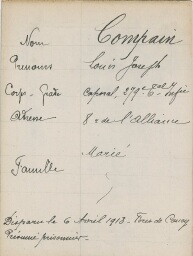 Nom Compain
Prenoms Louis Joseph
Corps - Grade Caporal 279e
Adresse 8 r de l'Alliance
Marié
Famille
Disparu le 6 Avril 1918 - de Coucy
Présumé prisonnier.